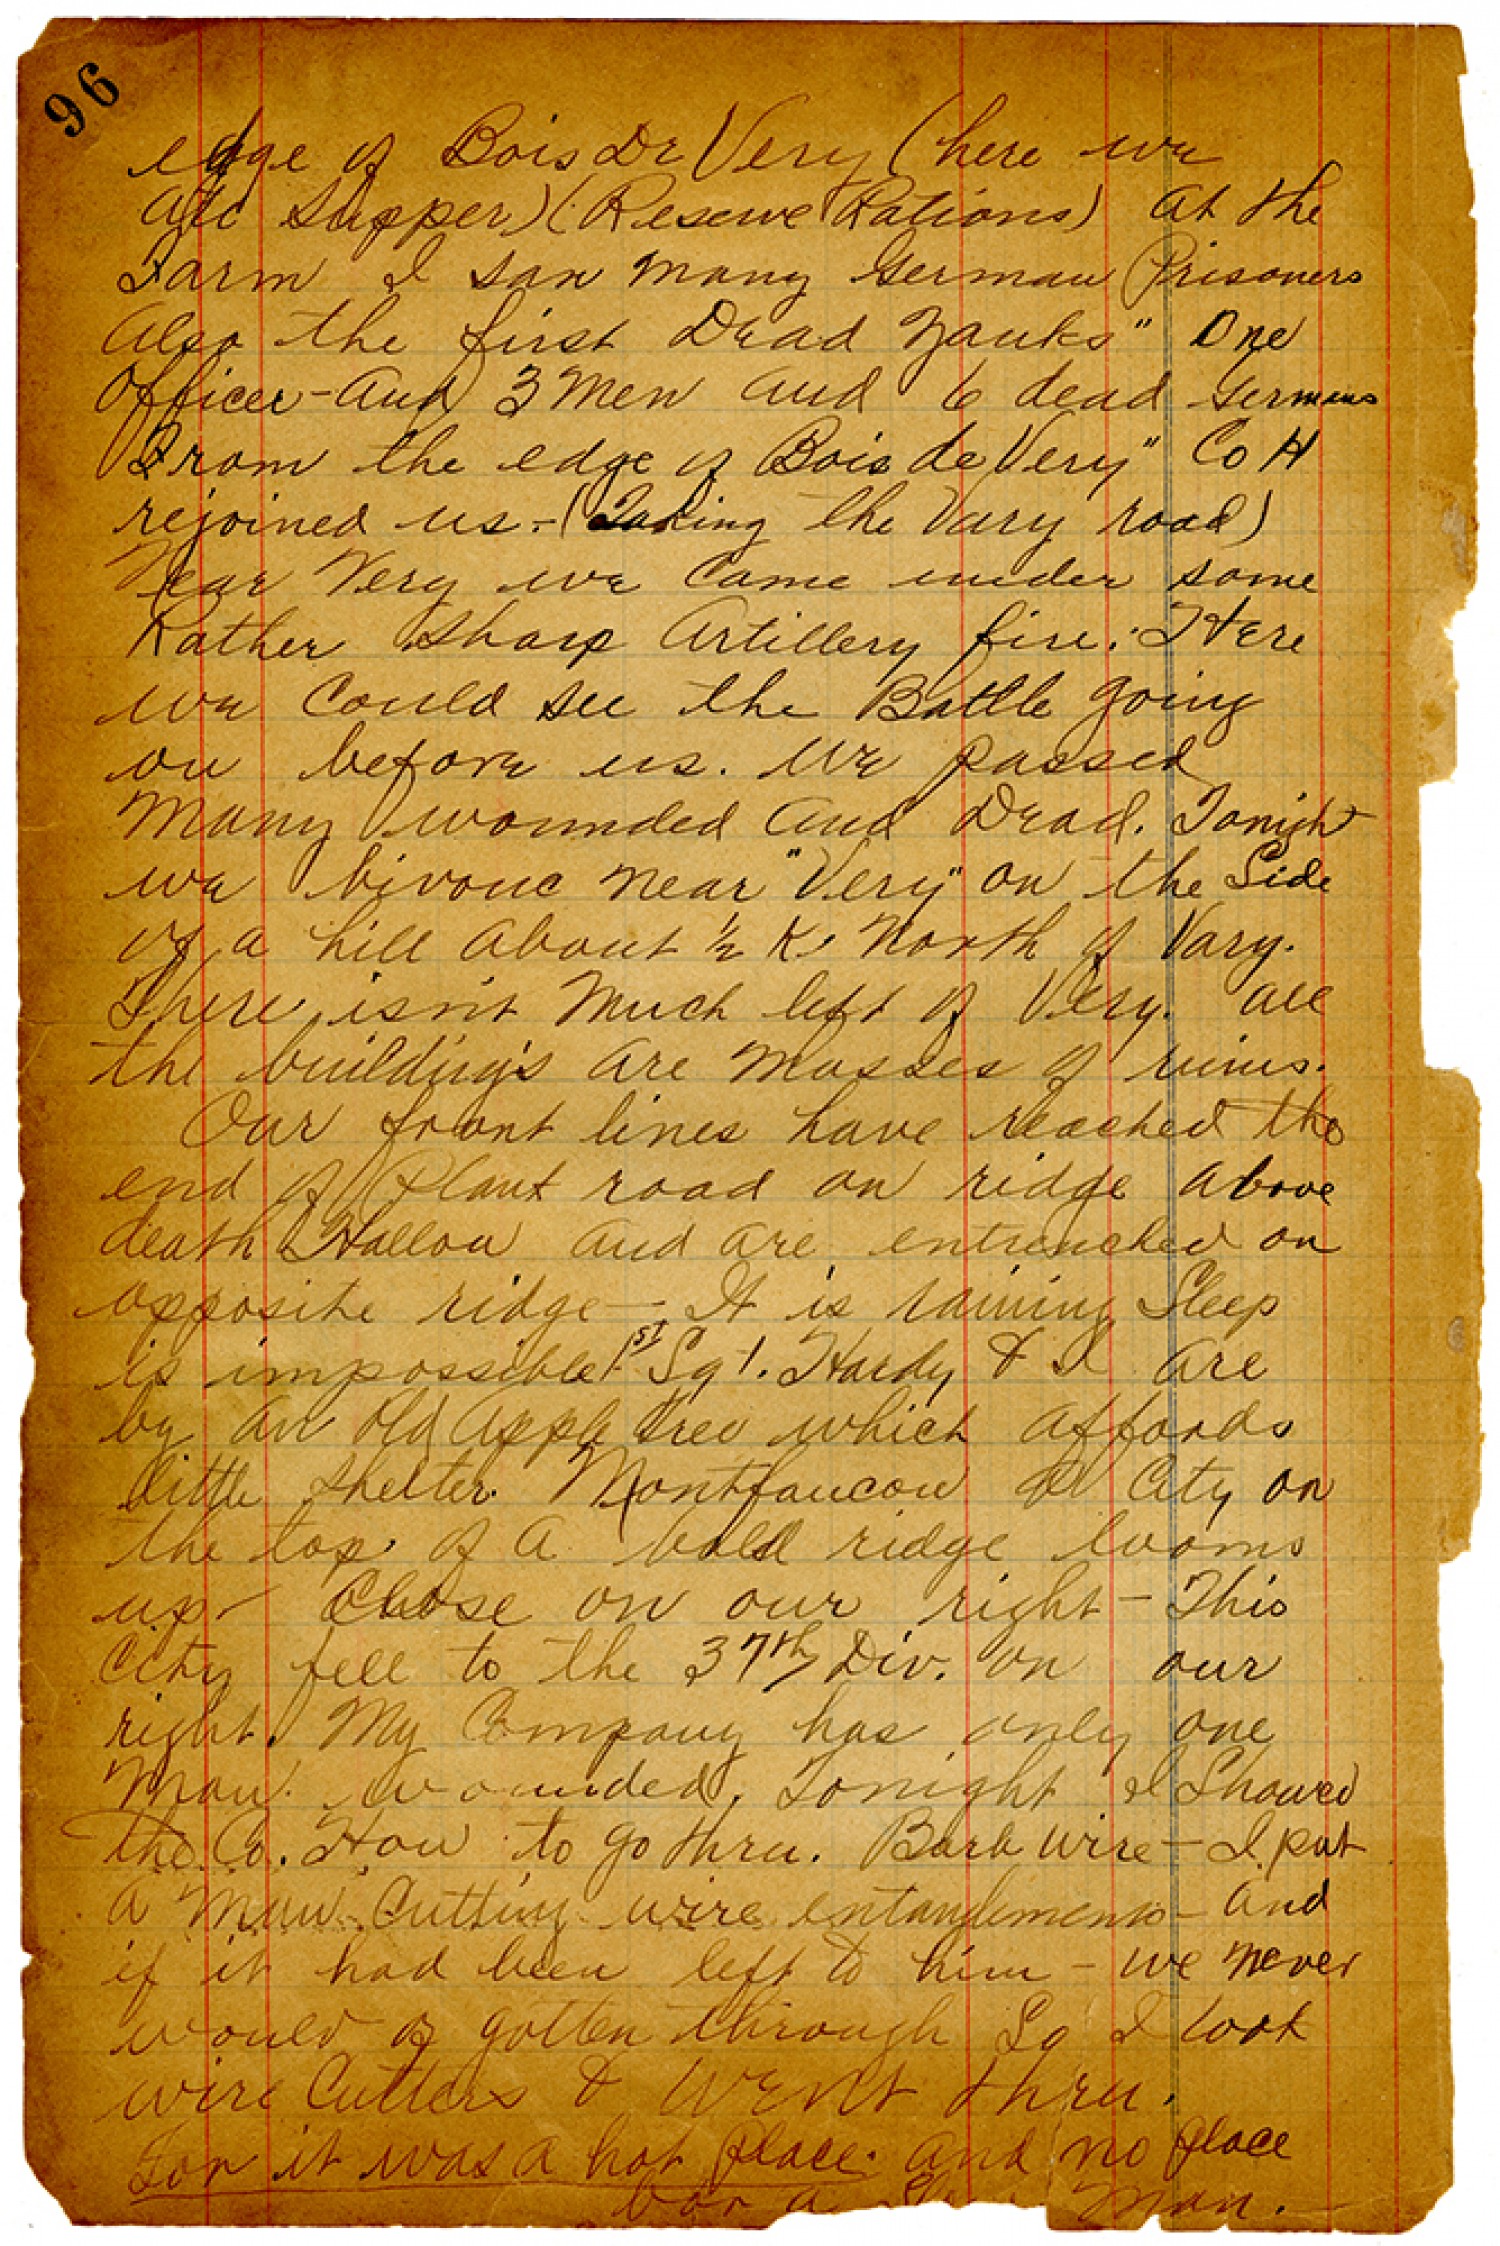 96
edge of Bois De Very (here we
ate supper) (Reserve Rations) At the
Farm I saw many German Prisoners
Also the first Dead Yanks" One
Officer - And 3 Men and 6 dead Germans
From the edge of Bois de Very" Co H
rejoined us - (Taking the Vary road)
Near Very we Came under some
Rather sharp Artillery fire. Here
we Could see the Battle going
on before us. We passed
Many wounded And Dead. Tonight
we bivouc near "Very" on the Side
of a hill About ½ K. North of Vary.
There isn't Much left of Very. All
the building's Are Masses of ruins.
Our front lines have reached the
end of Plant road on ridge Above
death Hallow and are entrenched on
opposite ridge - It is raining Sleep
is impossible. 1st Sgt. Hardy & I Are
by An Old Apple tree which Affords
little shelter. Montfaucon City on
the top of A bald ridge looms
up - Close on our right - This
City fell to the 37th Div. on our
right. My Company has only one
Man wounded. Tonight I Showed
the Co. How to go thru. Barb wire - I put
A Man Cutting wire entanglements - And
if it had been left to him - we never
would of gotten through So I took
wire Cutters & Went thru.
For it was A hot place. And no place
for a Man.